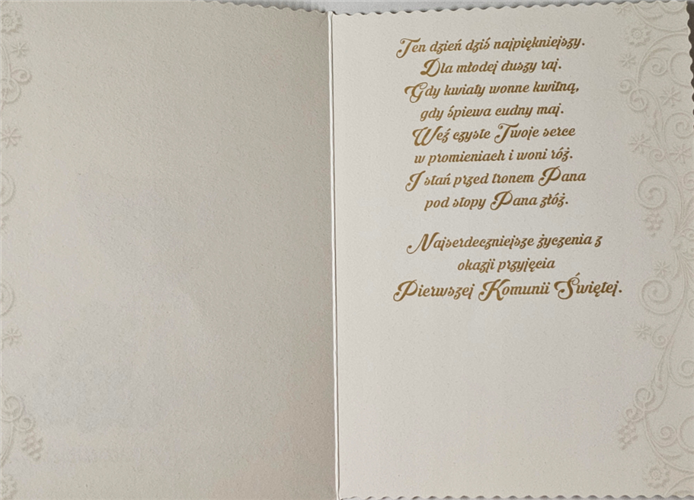 Ten dzień dziś najpiękniejszy.
Dla młodej duszy raj.
Gdy kwiaty wonne kwitną,
gdy śpiewa cudny maj.
Weź czyste Twoje serce
w promieniach i woni róż.
I stań przed tronem Pana
pod stopy Pana złóż.
Najserdeczniejsze życzenia z
okazji przyjęcia
Pierwszej Komunii Świętej.